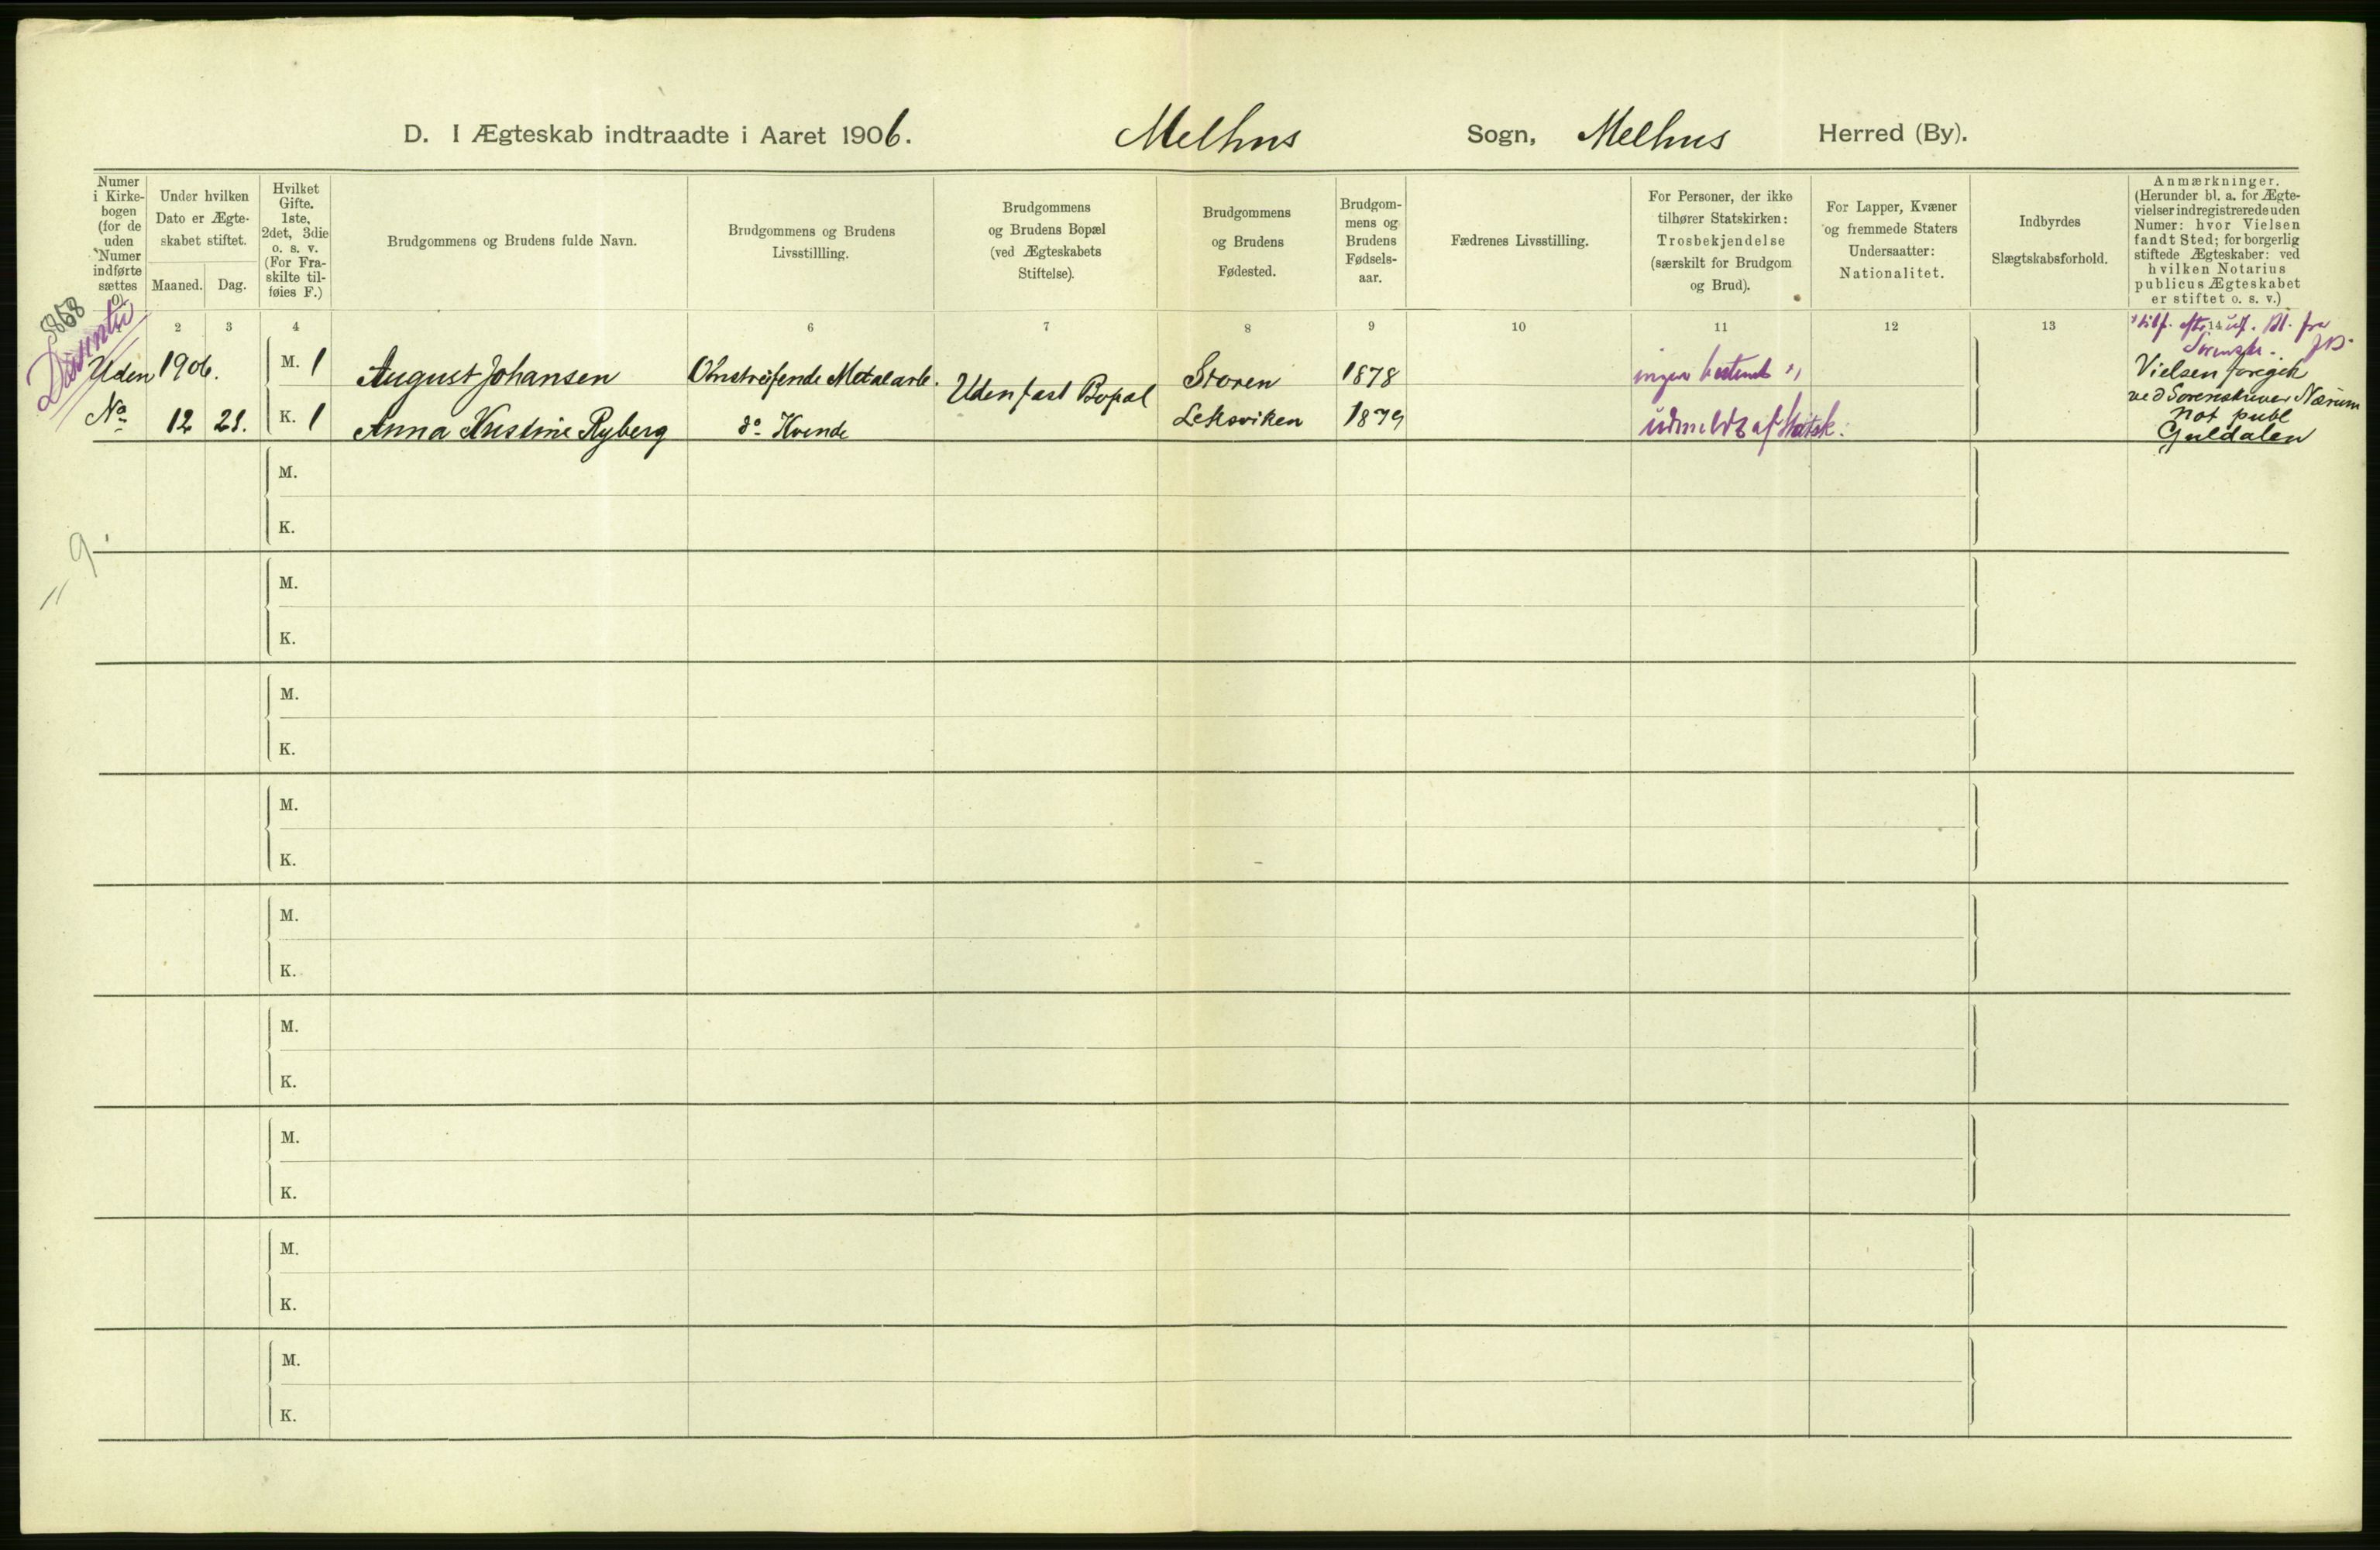 D. I Ægteskab indtraadte i Aaret 1906. Melhus Sogn, Melhus Herred (By).
Numer
i Kirke-
bogen
(for de
uden
Numer
indførte
sættes
0).
Under hvilken
Dato er Ægte-
skabet stiftet.
Maaned. Dag.
Hvilket
Gifte.
1ste,
2det, 3die
o. s. v.
(For Fra-
skilte til-
føies F.)
Brudgommens og Brudens fulde Navn.
Brudgommens og Brudens
Livsstillling.
Brudgommens
og Brudens Bopæl
(ved Ægteskabets
Stiftelse).
Brudgommens
og Brudens
Fødested.
Brudgom-
mens og
Brudens
Fødsels-
aar.
Fædrenes Livsstilling.
For Personer, der ikke
tilhører Statskirken:
Trosbekjendelse
(særskilt for Brudgom
og Brud).
For Lapper, Kvæner
og fremmede Staters
Undersaatter:
Nationalitet.
Indbyrdes
Slægtskabsforhold.
Anmærkninger.
(Herunder bl. a. for Ægte-
vielser indregistrerede uden
Numer: hvor Vielsen
fandt Sted; for borgerlig
stiftede Ægteskaber: ved
hvilken Notarius
publicus Ægteskabet
er stiftet o. s. v.)
2 3 4 6 7 8 9 10 11 12 13 14
5868
Uden 1906. M. 1 August Johansen Omstreifende Metalarb. Uden fast Bopæl Støren 1878 ingen bestemt
No 12 21. K. 1 Anna Kristine Ryberg do Kvinde Leksviken 1879 udmeldt af Statsk.
Vielsen foregik
ved Sorenskriver Nærum
Not publ
Guldalen
9
M.
K.
M.
K.
M.
K.
M.
K.
M.
K.
M.
K.
M.
K.
M.
K.
M.
K.